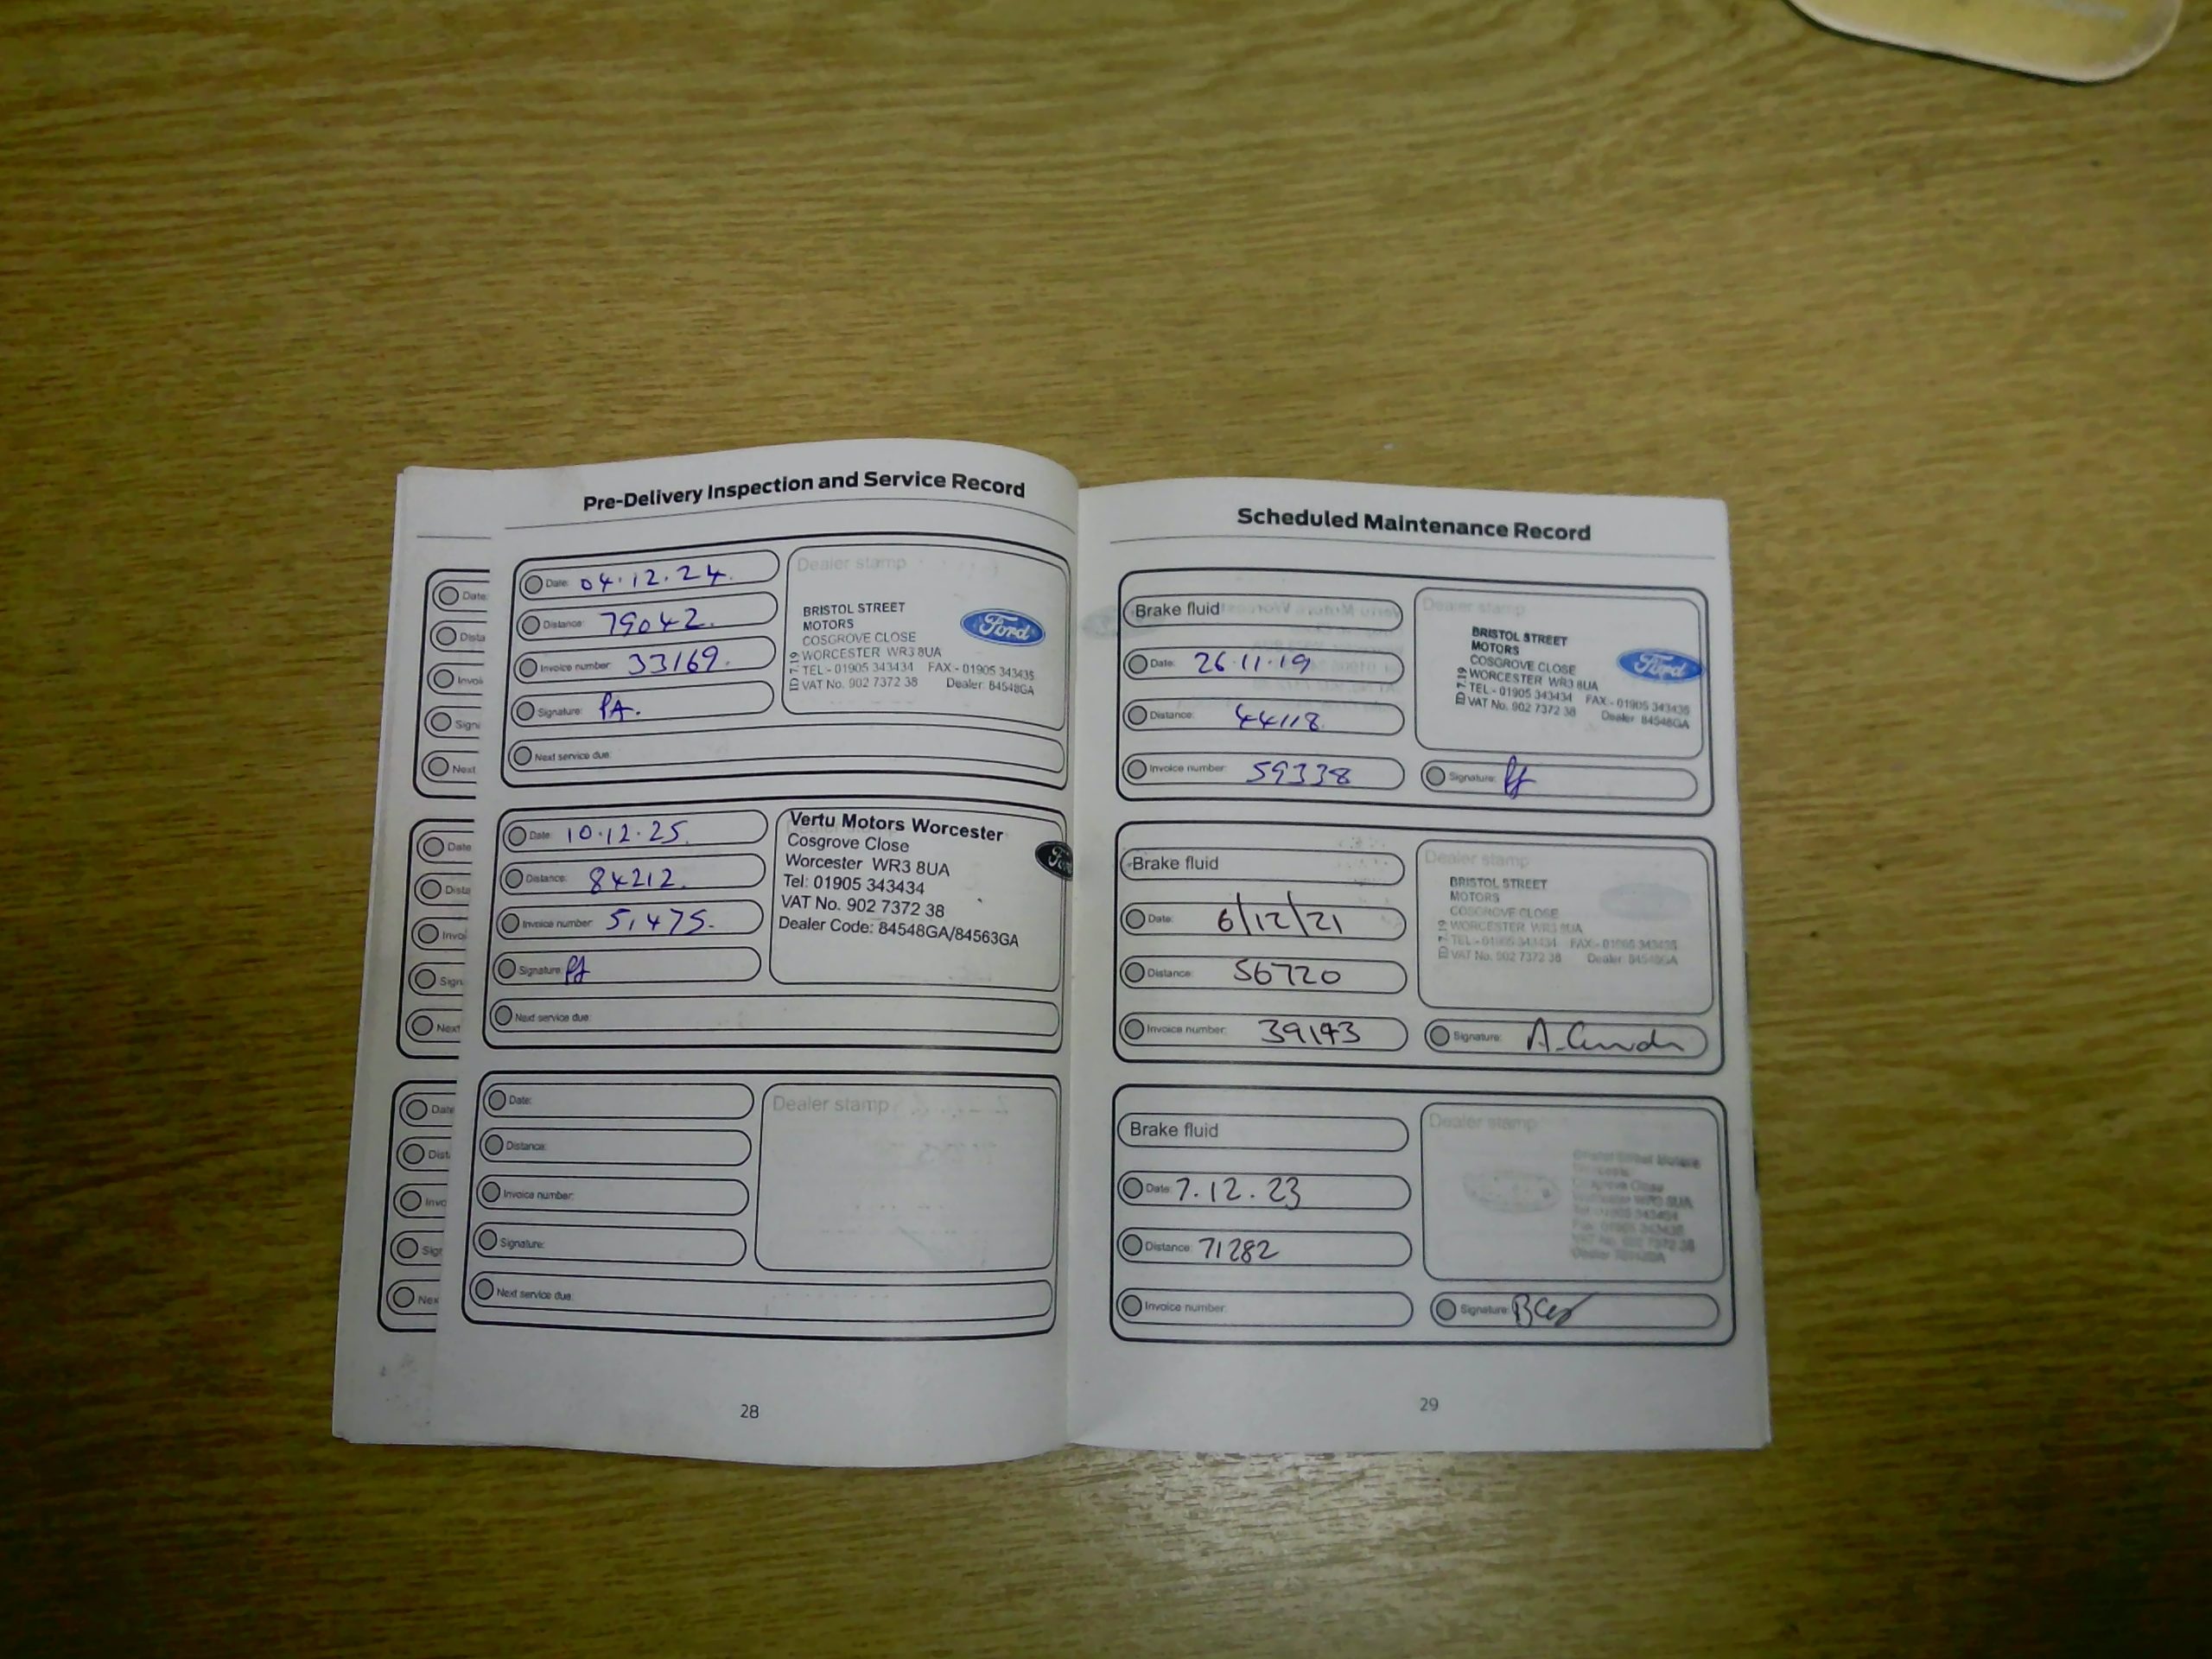 Pre-Delivery Inspection and Service Record
Date:
Dista
Invoi
Signa
Next
Date
Dista
Invoi
Sign
Next
Date
Dist
Invo
Sigr
Nex
Date: 04.12.24.
Distance: 79042.
Invoice number: 33169.
Signature: PA.
Next service due:
Dealer stamp
BRISTOL STREET
MOTORS
COSGROVE CLOSE
WORCESTER WR3 8UA
TEL - 01905 343434 FAX - 01905 343435
VAT No. 902 7372 38 Dealer: 84548GA
ID 7.19
Ford
Date: 10.12.25.
Distance: 84212.
Invoice number: 51475.
Signature:
Next service due:
Vertu Motors Worcester
Cosgrove Close
Worcester WR3 8UA
Tel: 01905 343434
VAT No. 902 7372 38
Dealer Code: 84548GA/84563GA
Date:
Distance:
Invoice number:
Signature:
Next service due:
Dealer stamp
28
Scheduled Maintenance Record
Brake fluid
Date: 26.11.19
Distance: 44118
Invoice number: 59338
Dealer stamp
BRISTOL STREET
MOTORS
COSGROVE CLOSE
WORCESTER WR3 8UA
TEL - 01905 343434 FAX - 01905 343435
VAT No. 902 7372 38 Dealer: 84548GA
ID 7.19
Ford
Signature:
Brake fluid
Date: 6/12/21
Distance: 56720
Invoice number: 39193
Dealer stamp
BRISTOL STREET
MOTORS
COSGROVE CLOSE
WORCESTER WR3 8UA
TEL - 01905 343434 FAX - 01905 343435
VAT No. 902 7372 38 Dealer: 84548GA
Signature:
Brake fluid
Date: 7.12.23
Distance: 71282
Invoice number:
Dealer stamp
Signature:
29